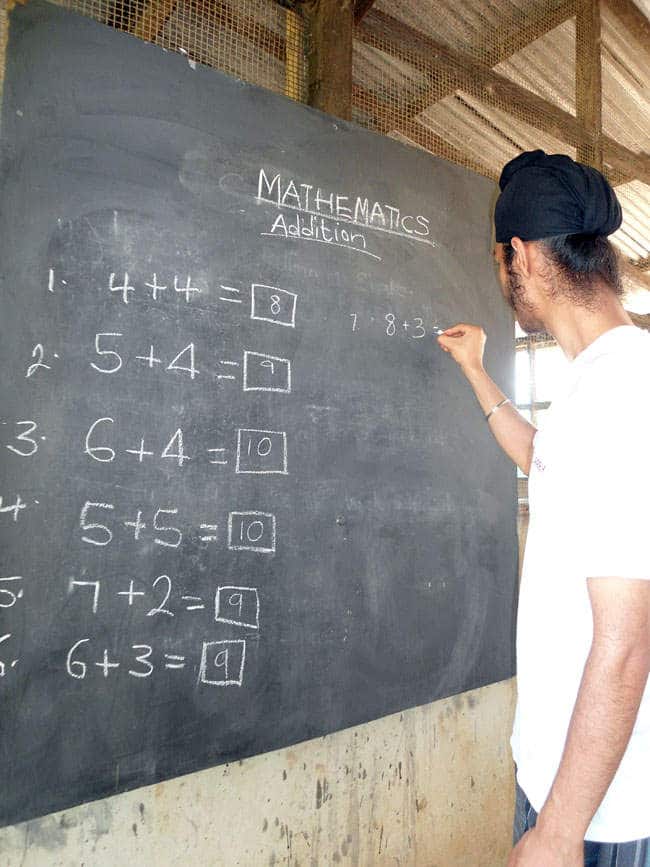 MATHEMATICS
Addition
1. 4+4 = 8
2. 5+4 = 9
3. 6+4 = 10
4. 5+5 = 10
5. 7+2 = 9
6. 6+3 = 9
7. 8+3 =